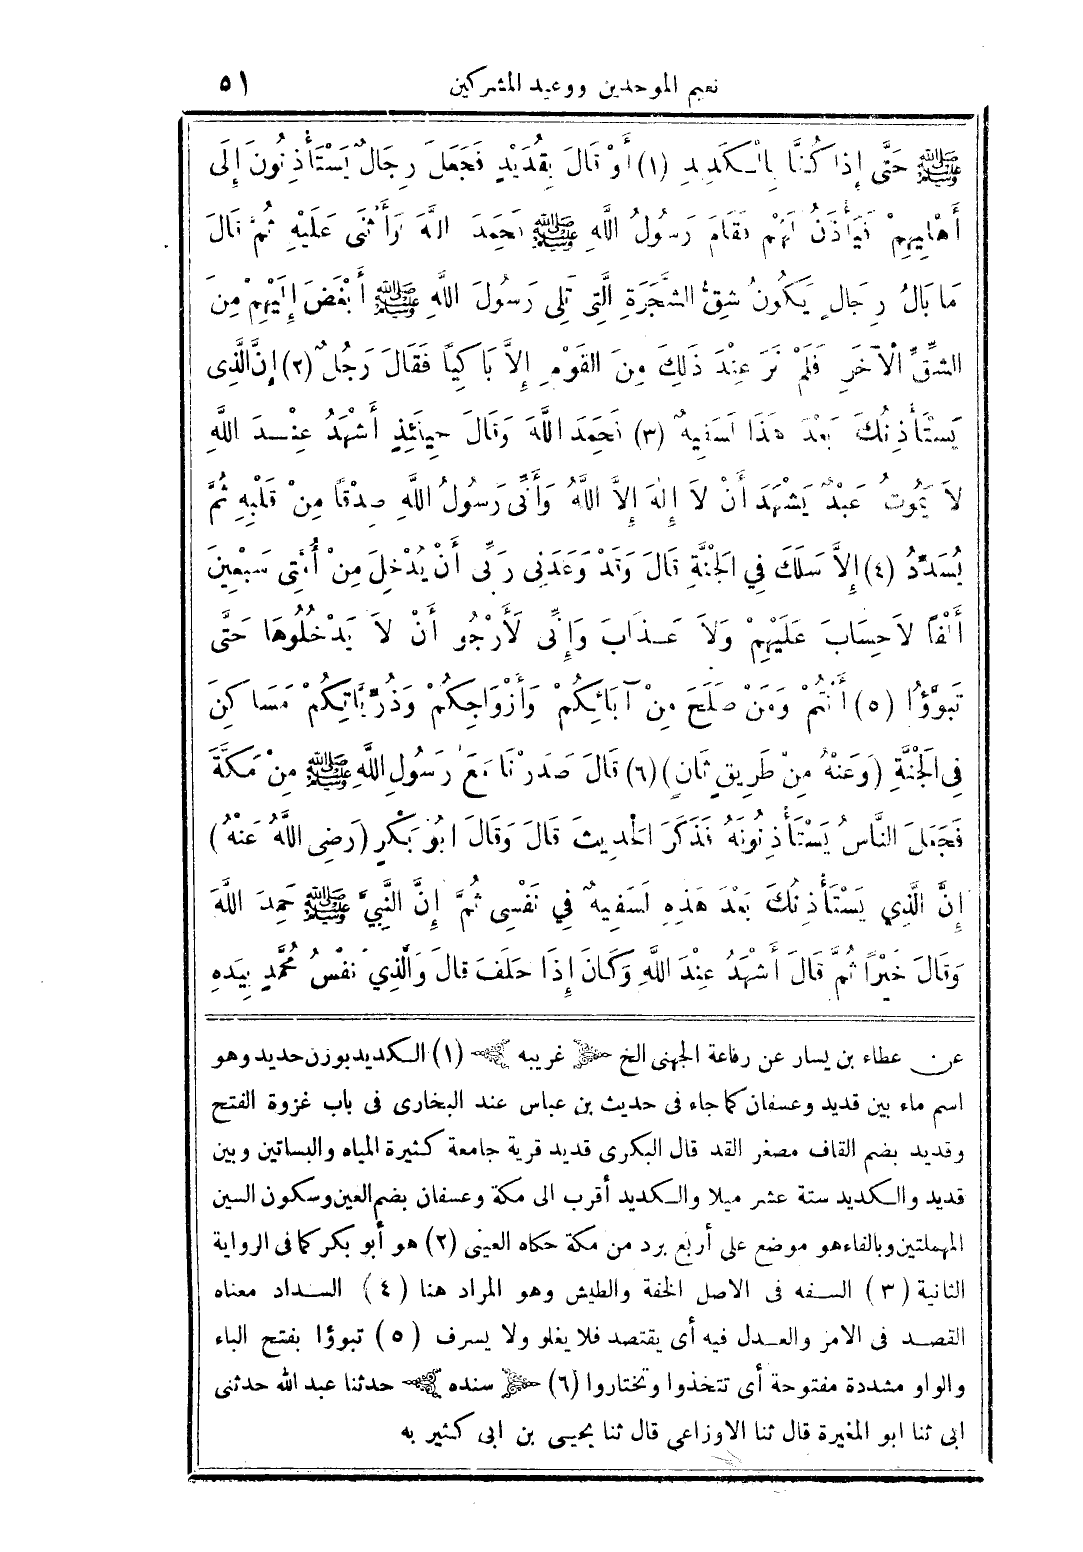 نعيم الموحدين ووعيد المشركين ٥١
ﷺ حَتَّى إِذَا كُنَّا بِالْكَدِيدِ (١) أَوْ قَالَ بِقُدَيْدٍ فَجَعَلَ رِجَالٌ يَسْتَأْذِنُونَ إِلَى
أَهْلِيهِمْ فَيَأْذَنُ لَهُمْ فَقَامَ رَسُولُ اللهِ ﷺ فَحَمِدَ اللهَ وَأَثْنَى عَلَيْهِ ثُمَّ قَالَ
مَا بَالُ رِجَالٍ يَكُونُ شِقُّ الشَّجَرَةِ الَّتِى تَلِى رَسُولَ اللهِ ﷺ أَبْغَضَ إِلَيْهِمْ مِنَ
الشِّقِّ الْآخَرِ فَلَمْ نَرَ عِنْدَ ذَلِكَ مِنَ القَوْمِ إِلاَّ بَاكِيًا فَقَالَ رَجُلٌ (٢) إِنَّ الَّذِى
يَسْتَأْذِنُكَ بَعْدَ هَذَا لَسَفِيهٌ (٣) فَحَمِدَ اللهَ وَقَالَ حِينَئِذٍ أَشْهَدُ عِنْدَ اللهِ
لاَ يَمُوتُ عَبْدٌ يَشْهَدَ أَنْ لاَ إِلٰهَ إِلاَّ اللهُ وَأَنِّى رَسُولُ اللهِ صِدْقًا مِنْ قَلْبِهِ ثُمَّ
يُسَدَّدُ (٤) إِلاَّ سَلَكَ فِي الجَنَّةِ قَالَ وَقَدْ وَعَدَنِى رَبِّى أَنْ يُدْخِلَ مِنْ أُمَّتِى سَبْعِينَ
أَلْفًا لاَ حِسَابَ عَلَيْهِمْ وَلاَ عَذَابَ وَإِنِّى لَأَرْجُو أَنْ لاَ يَدْخُلُوهَا حَتَّى
تَبَوَّؤُا (٥) أَنْتُمْ وَمَنْ صَلَحَ مِنْ آبَائِكُمْ وَأَزْوَاجِكُمْ وَذُرِّيَّاتِكُمْ مَسَاكِنَ
فِى الجَنَّةِ (وَعَنْهُ مِنْ طَرِيقٍ ثَانٍ) (٦) قَالَ صَدَرْنَا مَعَ رَسُولِ اللهِ ﷺ مِنْ مَكَّةَ
فَجَعَلَ النَّاسُ يَسْتَأْذِنُونَهُ فَذَكَرَ الحَدِيثَ قَالَ وَقَالَ ابُو بَكْرٍ (رَضِى اللهُ عَنْهُ)
إِنَّ الَّذِي يَسْتَأْذِنُكَ بَعْدَ هَذِهِ لَسَفِيهٌ فِي نَفْسِى ثُمَّ إِنَّ النَّبِيَّ ﷺ حَمِدَ اللهَ
وَقَالَ خَيْرًا ثُمَّ قَالَ أَشْهَدُ عِنْدَ اللهِ وَكَانَ إِذَا حَلَفَ قَالَ وَالَّذِي نَفْسُ مُحَمَّدٍ بِيَدِهِ
عن عطاء بن يسار عن رفاعة الجهنى الخ غريبه (١) الكديد بوزن حديد وهو
اسم ماء بين قديد وعسفان كما جاء فى حديث بن عباس عند البخارى فى باب غزوة الفتح
وقديد بضم القاف مصغر القد قال البكرى قديد قرية جامعة كثيرة المياه والبساتين وبين
قديد والكديد ستة عشر ميلا والكديد أقرب الى مكة وعسفان بضم العين وسكون السين
المهملتين وبالفاء هو موضع على أربع برد من مكة حكاه العينى (٢) هو أبو بكر كما فى الرواية
الثانية (٣) السفه فى الاصل الخفة والطيش وهو المراد هنا (٤) السداد معناه
القصد فى الامر والعدل فيه أى يقتصد فلا يغلو ولا يسرف (٥) تبوؤا بفتح الباء
والواو مشددة مفتوحة أى تتخذوا وتختاروا (٦) سنده حدثنا عبد الله حدثنى
ابى ثنا ابو المغيرة قال ثنا الاوزاعى قال ثنا يحيى بن ابى كثير به